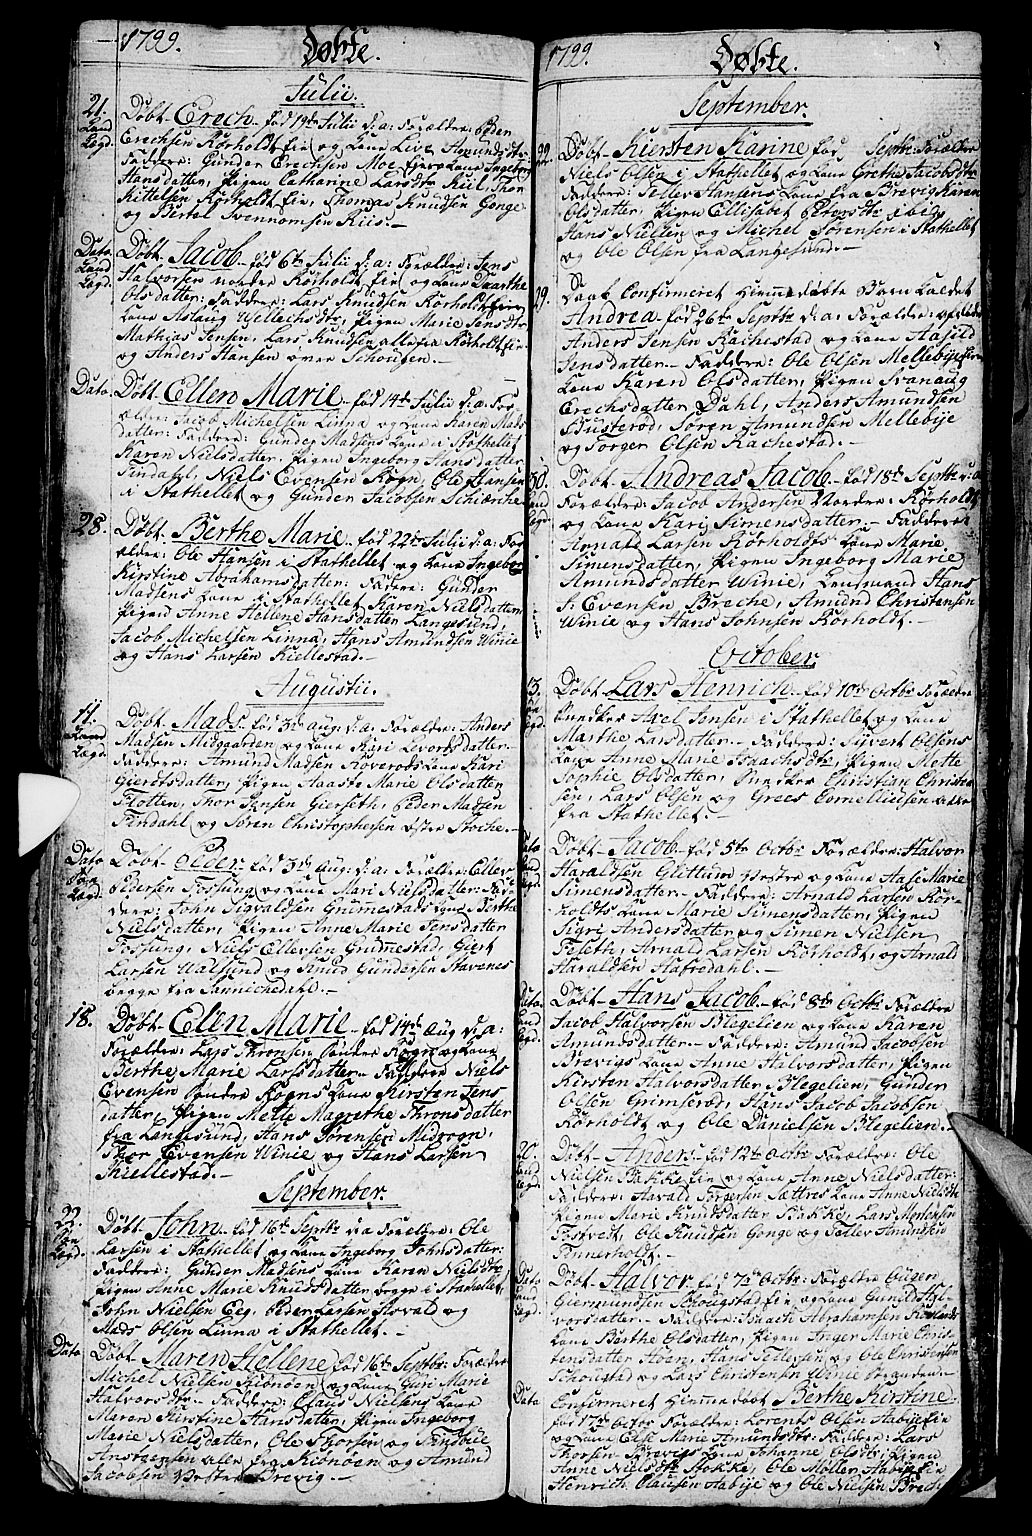 1799.
Døbte.
Julii.
21.
Land
Lægd.
Døbt Erech fød 19de Julii d: a: Forældre: Peder
Erechsen Rörholdt eie og Kone Live Amundsdtr
Faddere: Gunder Erechsen Moe, hans Kone Ingeborg
Hansdatter, Pigen Cathrine Larsdtr Kiil, Thor
Kittelsen Rörholdt eie, Thomas Knudsen Gonge
og Bertel Svennomsen Riis.-
Dato
Land
Lægd.
Døbt Jacob fød 6te Julii d: a: Forældre: Jens
Halvorsen nordre Rörholdt eie og Kone Daarthe
Olsdatter: Faddere: Lars Knudsen Rörholdt eies
Kone Aslaug Wellechsdtr, Pigen Marie Jensdtr
Mathias Jensen, Lars Knudsen alle fra Rörholdt eie
og Anders Hansen övre Schoudsen.-
Dato.
Døbt Ellen Marie fød 14de Julii d: a: For
ældre: Jacob Michelsen Linna og Kone Karen Mads
datter: Faddere: Gunder Madsens Kone i Stathellet
Karen Nielsdatter, Pigen Ingeborg Hansdatter
Findahl, Niels Evensen Rogn, Ole Hansen
i Stathellet og Gunder Jacobsen
28.
Døbt Berthe Marie fød 22de Julii d: a: For
ældre: Ole Hansen i Stathellet og Kone Ingeborg
Kirstine Abrahamsdatter: Faddere: Gunder
Madsens Kone i Stathellet Karen Nielsdatter
Pigen Anne Hellene Hansdatter Langesund,
Jacob Michelsen Linna, Hans Amundsen Winie
og Hans Larsen Kiellestad.-
Augustii.
11.
Land
Lægd.
Døbt Mads fød 3de aug: d: a: Forældre: Anders
Madsen Midgaarden og Kone Kari Levordsdatter
Faddere: Amund Madsen Roverods Kone Kari
Giertsdatter, Pigen Aaste Marie Olsdatter
Flotten, Thor Jensen Gierseth, Peder Madsen
Findahl og Sören Christophersen Östre Stoche.-
Dato
Søe
Lægd.
Døbt Peder fød 3de Aug: d: a: Forældre: Ellev
Pedersen Fossung og Kone Mari Nielsdatter: Fad
dere: John Sigvaldsen Grummestads Kone Berthe
Nielsdatter, Pigen Anne Marie Jensdatter
Fossung, Niels Ellevsen Gudnestad, Giert
Larsen Walsund og Knud Gundersen Stavenes
begge fra Sannichedahl.-
18.
Døbt Elen Marie fød 14de Aug d: a:
Forældre: Lars Thronsen søndre Rogn og Kone
Berthe Marie Larsdatter Faddere Niels
Evensen søndre Rogns Kone Kirsten Jens
datter, Pigen Mette Magrethe Thronsdatter
fra Langesund, Hans Sörensen Midrogn,
Thor Evensen Winie og Hans Larsen
Kiellestad.-
September.
22.
Søe
Lægd.
Døbt John fød 16de Septbr da Forældre: Ole
Larsen i Stathellet og Kone Ingeborg Johnsdatter:
Faddere: Gunder Madsens Kone Karen Nielsdtr
Pigen Anne Marie Knudsdatter begge i Stathellet
John Nielsen Eeg, Peder Larsen Skovald og
Mads Olsen Linna i Stathellet.-
Dato
Døbt Maren Hellene fød 16de Septbr: Forældre
Michel Nielsen Kionöen og Kone Guri Marie
Halvorsdtr Faddere: Claus Nielsens Kone
Maren Kirstine Hansdatter, Pigen Ingeborg
Marie Nielsdatter, Ole Thorsen og
Anstensen alle fra Kionöen og Amund
Jacobsen Vestre Brevig.-
1799.
Døbte.
September.
22.
Døbt Kiersten Karine fød Septbr: Forældre
Niels Olsen i Stathellet og Kone Grethe Jacobsdtr
Faddere: Teller Hansens Kone fra Brevig Karen
Olsdatter, Pigen Ellisabet Persdtr ibid,
Hans Nielsen og Michel Sörensen i Stathellet
og Ole Olsen fra Langesund.-
29.
Blev Confirmeret hiemmedøbte Barn kaldet
Andrea fød 26de Septbr d: a: Forældre:
Anders Jensen Rachestad og Kone Aasild
Jensdatter.- Faddere: Ole Olsen Mellebye eies
Kone Karen Olsdatter, Pigen Svanaug
Erechsdatter Dahl, Anders Amundsen
Busterød, Sören Amundsen Mellebye
og Torger Olsen Rachestad.-
30.
Land
Lægd.
Døbt Andreas Jacob fød 18de Septbr: d: a:
Forældre: Jacob Andersen Nordre Rörholdt
og Kone Kari Simensdatter.- Faddere:
Arnald Larsen Rörholdts Kone Marie
Simensdatter, Pigen Ingeborg Marie
Amundsdatter Winie, Lensmand Hans
Evensen Breche, Amund Christensen
Winie og Hans Johnsen Rörholdt.-
October.
13.
Døbt Lars Henrich fød 10de Octbr Forældre
Axel Jensen i Stathellet og Kone
Marthe Larsdatter.- Faddere: Syvert Olsens
Kone Anne Marie Isaachsdtr, Pigen Mette
Sophie Olsdatter, Christian Christen
sen, Lars Olsen og Grees Cornelliusen alle
fra Stathellet.-
Dato
Land
Lægd.
Døbt Jacob fød 5te Octbr Forældre: Halvor
Haraldsen Glittum Vestre og Kone Aase Marie
Simensdatter: Faddere: Arnald Larsen Rör-
holdts Kone Marie Simensdatter, Pigen
Sigri Andersdatter og Simen Nielsen
Teseth, Arnald Larsen Rörholdt, og Arnald
Haraldsen Hafredahl.-
Dato
Land
Lægd.
Døbt Hans Jacob fød 8de Octbr Forældre
Jacob Halvorsen Blegelien og Kone Karen
Amundsdatter.- Faddere: Amund Jacobsen
Brevigs Kone Anne Halvorsdatter, Pigen
Kirsten Halvorsdatter Blegelien, Gunder
Olsen Grimseröd, Hans Jacob Jacobsen
Rörholdt og Ole Danielsen Blegelien.-
20.
Land
Lægd.
Døbt Anders fød 12te Octbr Forældre: Ole
Nielsen Bakke eie og Kone Anne Nielsdatter:
Faddere: Harald Torgersen Sættres Kone Anne Nielsdtr
Pigen Marie Knudsdatter Bakke, Lars Mortensen
Fostvedt, Ole Knudsen Gonge og Taller Amundsen
Finnerholdt.-
Dato
Land
Lægd.
Døbt Halvor fød 7de Octbr: Forældre Eugen
Giermundsen Schougstad eie og Kone Gunild Hal
vorsdatter.- Faddere: Isaach Abrahamsen
Kone Barthe Olsdatter, Pigen Inger Marie Chris-
tensdatter Hoen, Hans Tellefsen og Ole Christensen
Schougstad og Lars Christensen Winie
Dato
Confirmeret Hiemmedøbt Berthe Kirstine
fød 17de Octbr Forældre: Lorents Olsen Aabye eie
og Kone Else Marie Amundsdtr: Faddere: Lars
Thorsen Brevigs Kone Johanne Olsdtr: Pigen
Anne Nielsdtr Stokke, Ole Möller Aabye eie
Henrich Clausen Aabye og Ole Nielsen Breche